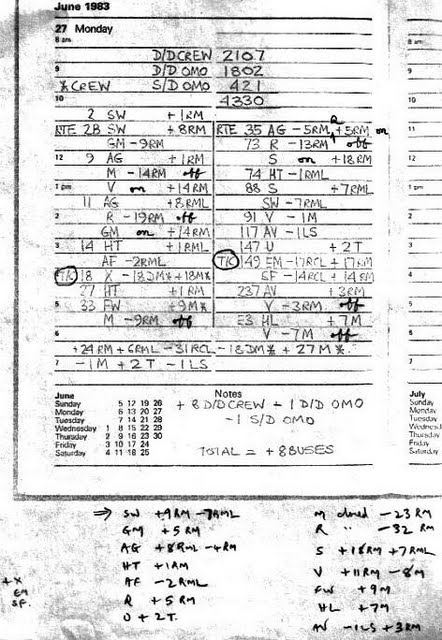 June 1983
27 Monday
8 am
D/D CREW 2107
9 D/D OMO 1802
*CREW S/D OMO 421
10 4330
2 SW +1RM
RTE 2B SW +8RM
GM -9RM
12 9 AG +1RM
M -14RM off
1 pm V on +14RM
11 AG +8RML
2 R -19RM off
GM on +14RM
3 14 HT +1RML
AF -2RML
T/C 18 X -18DM* +18M*
27 HT +1RM
5 33 FW +9M*
M -9RM off
RTE 35 AG -5RM, +5RM on
R
73 R -13RM off
S on +18RM
74 HT -1RML
88 S +7RML
SW -7RML
91 V -1M
117 AV -1LS
147 U +2T
T/C 149 EM -17RCL +17RM
SF -14RCL +14RM
237 AV +3RM
V -3RM off
E3 HL +7M
V -7M off
6
+24RM +6RML -31RCL -18DM* +27M*
7 -1M +2T -1LS
June
Sunday 5 12 19 26
Monday 6 13 20 27
Tuesday 7 14 21 28
Wednesday 1 8 15 22 29
Thursday 2 9 16 23 30
Friday 3 10 17 24
Saturday 4 11 18 25
Notes
+8 D/D CREW +1 D/D OMO
-1 S/D OMO
TOTAL = +8 BUSES
July
Sunday
Monday
Tuesday
Wednesd
Thursday
Friday
Saturday
⇒ SW +9RM -7RML
GM +5RM
AG +8RML -4RM
HT +1RM
AF -2RML
R +5RM
U +2T.
+X
EM
SF.
M closed -23RM
R " -32RM
S +18RM +7RML
V +11RM -8M
FW +9M
HL +7M
AV -1LS +3RM